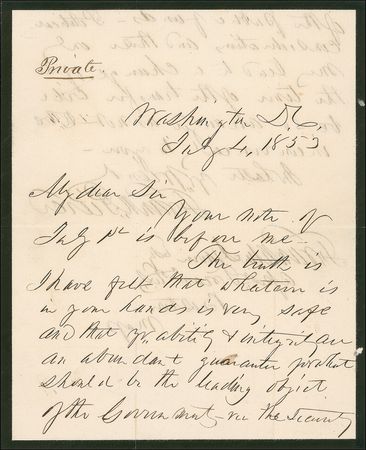 Private.
Washington D.C.
July 4, 1853
My dear Sir
Your note of
July 1st is before me—
The truth is
I have felt that whatever is
in your hands is very safe
and that yr. ability & integrity are
an abundant guarantee for what
should be the leading object
of the Government—viz the security